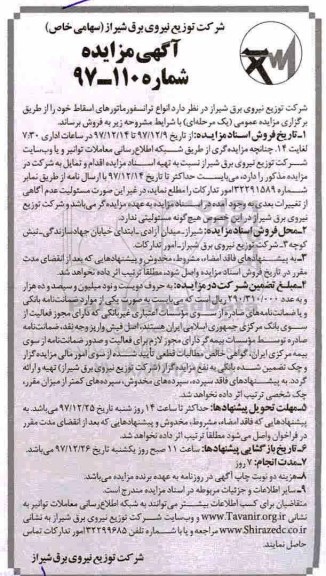 شرکت توزیع نیروی برق شیراز (سهامی خاص)
آگهی مزایده
شماره ۱۱۰-۹۷
شرکت توزیع نیروی برق شیراز در نظر دارد انواع ترانسفورماتورهای اسقاط خود را از طریق
برگزاری مزایده عمومی (یک مرحله‌ای) با شرایط مشروحه زیر به فروش برساند.
۱-تاریخ فروش اسناد مزایده: از تاریخ ۹۷/۱۲/۹ تا ۹۷/۱۲/۱۴ در ساعات اداری ۷/۳۰
لغایت ۱۴. چنانچه مزایده‌گری از طریق شبکه اطلاع‌رسانی معاملات توانیر و یا وب‌سایت
شرکت توزیع نیروی برق شیراز نسبت به تهیه اسناد مزایده اقدام و تمایل به شرکت در
مزایده مذکور را دارد، می‌بایست حداکثر تا تاریخ ۹۷/۱۲/۱۴ با ارسال نامه از طریق نمابر
شماره ۳۲۲۹۱۵۸۹ امور تدارکات را مطلع نماید، در غیر این صورت مسئولیت عدم آگاهی
از تغییرات بعدی به وجود آمده در اسناد مزایده به عهده مزایده‌گر می‌باشد و شرکت توزیع
نیروی برق شیراز در این خصوص هیچ‌گونه مسئولیتی ندارد.
۲-محل فروش اسناد مزایده: شیراز-میدان آزادی-ابتدای خیابان جهادسازندگی-نبش
کوچه ۳-شرکت توزیع نیروی برق شیراز-امور تدارکات.
۳-به پیشنهادهای فاقد امضاء، مشروط، مخدوش و پیشنهادهایی که بعد از انقضای مدت
مقرر در تاریخ فروش اسناد مزایده واصل شود، مطلقا ترتیب اثر داده نخواهد شد.
۴-مبلغ تضمین شرکت در مزایده: به حروف دویست و نود میلیون و سیصد و ده هزار
و به عدد ۲۹۰/۳۱۰/۰۰۰ ریال است که می‌بایست به صورت یکی از موارد ضمانت‌نامه بانکی
و یا ضمانت‌نامه‌های صادره از سوی مؤسسات اعتباری غیربانکی که دارای مجوز فعالیت از
سوی بانک مرکزی جمهوری اسلامی ایران هستند، اصل فیش واریز وجه نقد، ضمانت‌نامه
صادره توسط مؤسسات بیمه‌گر دارای مجوز لازم برای فعالیت و صدور ضمانت‌نامه از سوی
بیمه مرکزی ایران، گواهی خالص مطالبات قطعی تأیید شده از سوی امور مالی مزایده‌گزار
و چک تضمین شده بانکی به نفع مزایده‌گزار (شرکت توزیع نیروی برق شیراز) تهیه و ارائه
گردد. به پیشنهادهای فاقد سپرده، سپرده‌های مخدوش، سپرده‌های کمتر از میزان مقرر،
چک شخصی ترتیب اثر داده نخواهد شد.
۵-مهلت تحویل پیشنهادها: حداکثر تا ساعت ۱۴ روز شنبه تاریخ ۹۷/۱۲/۲۵ می‌باشد. به
پیشنهادهایی که فاقد امضاء، مشروط، مخدوش و پیشنهادهایی که بعد از انقضای مدت مقرر
در فراخوان واصل می‌شود مطلقا ترتیب اثر داده نخواهد شد.
۶-تاریخ بازگشایی پیشنهادها: ساعت ۱۱ صبح روز یکشنبه تاریخ ۹۷/۱۲/۲۶ می‌باشد.
۷-مدت انجام: ۷ روز
۸-هزینه دو نوبت چاپ آگهی در روزنامه به عهده برنده مزایده می‌باشد.
۹-سایر اطلاعات و جزئیات مربوطه در اسناد مزایده مندرج است.
متقاضیان برای کسب اطلاعات بیشتر می‌توانند به شبکه اطلاع‌رسانی معاملات توانیر به
نشانی www.Tavanir.org.ir و وب‌سایت شرکت توزیع نیروی برق شیراز به نشانی
www.Shirazedc.co.ir مراجعه و یا با شماره تلفن ۳۲۲۹۹۶۸۵ امور تدارکات تماس
حاصل نمایند.
شرکت توزیع نیروی برق شیراز